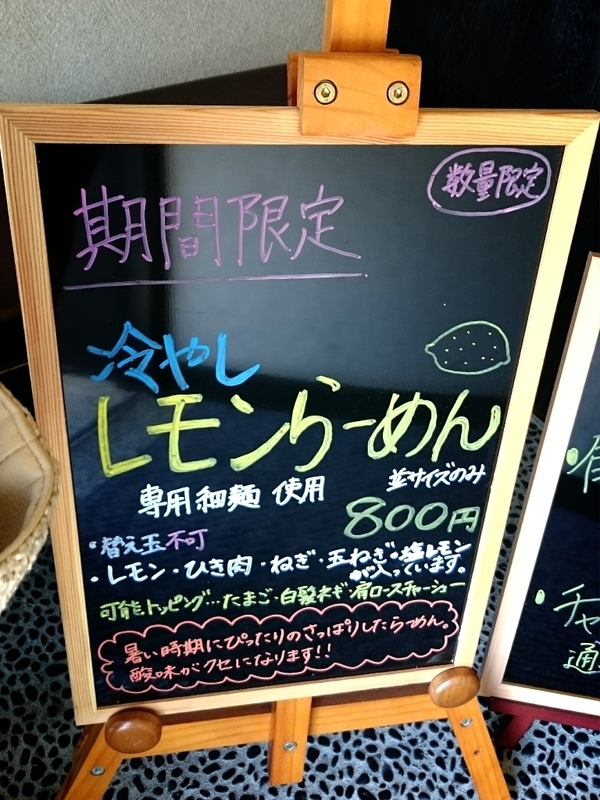 数量限定
期間限定
冷やし
レモンらーめん
専用細麺 使用
並サイズのみ
800円
・替え玉不可
・レモン・ひき肉・ねぎ・玉ねぎ・塩レモン
が入っています。
可能トッピング…たまご・白髪ネギ・肩ロースチャーシュー
暑い時期にぴったりのさっぱりしたらーめん。
酸味がクセになります!!
チャ
通